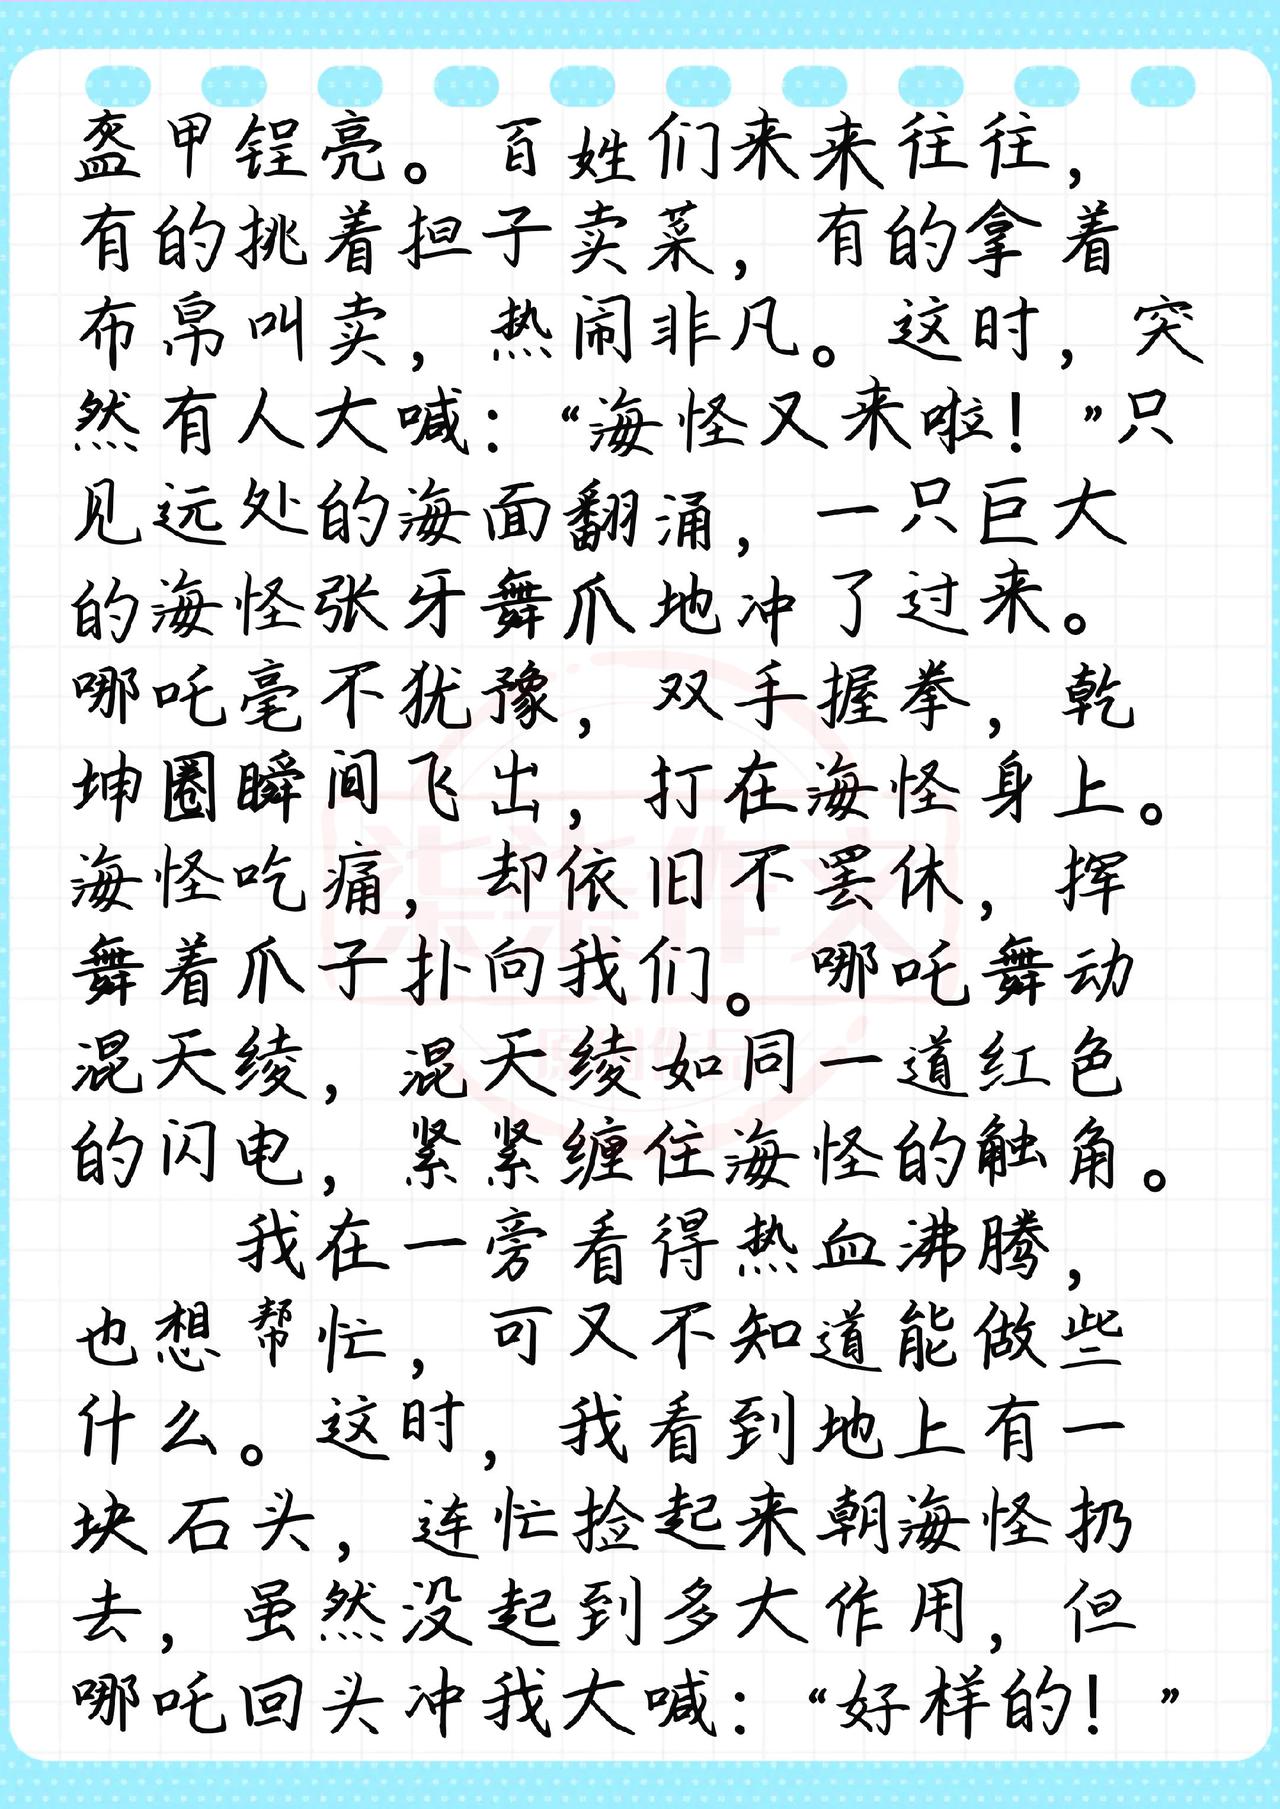 盔甲锃亮。百姓们来来往往，
有的挑着担子卖菜，有的拿着
布帛叫卖，热闹非凡。这时，突
然有人大喊：“海怪又来啦！”只
见远处的海面翻涌，一只巨大
的海怪张牙舞爪地冲了过来。
哪吒毫不犹豫，双手握拳，乾
坤圈瞬间飞出，打在海怪身上。
海怪吃痛，却依旧不罢休，挥
舞着爪子扑向我们。哪吒舞动
混天绫，混天绫如同一道红色
的闪电，紧紧缠住海怪的触角。
我在一旁看得热血沸腾，
也想帮忙，可又不知道能做些
什么。这时，我看到地上有一
块石头，连忙捡起来朝海怪扔
去，虽然没起到多大作用，但
哪吒回头冲我大喊：“好样的！”
柒柒作文
原创作品